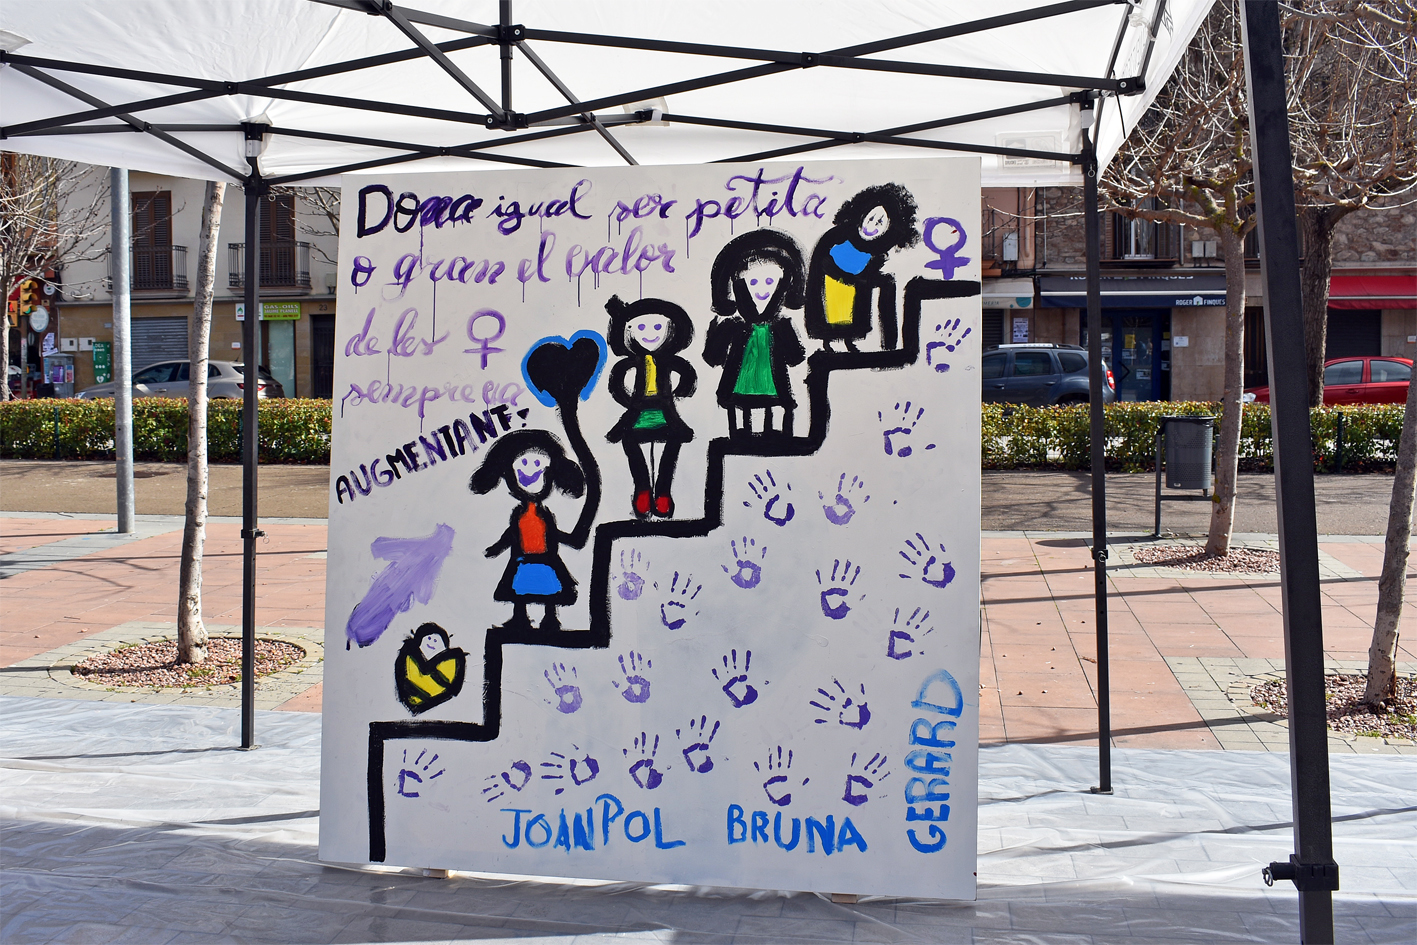 Dona igual ser petita
o gran el valor
de les ♀
sempre va
AUGMENTANT:
JOAN POL BRUNA
GERARD
ROGER FINQUES